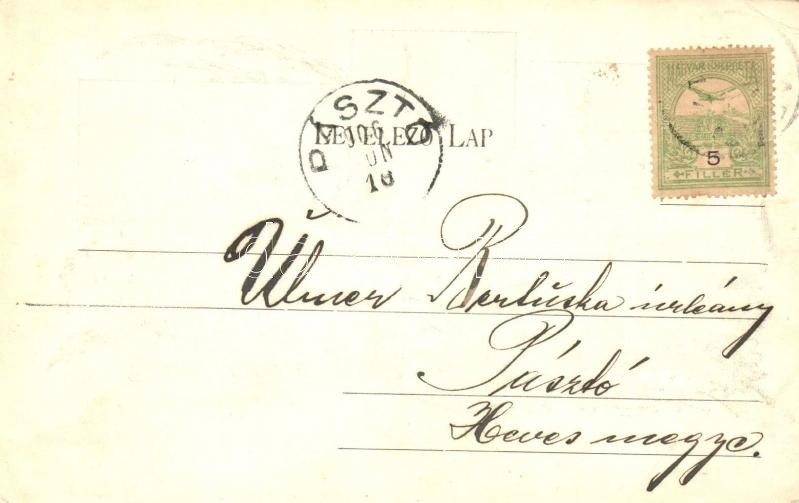 MAGYAR KIR. POSTA
5
FILLÉR
PÁSZTÓ
906
JUN
16
LEVELEZŐ LAP
Ulmer Bertuska úrleány
Pásztó
Heves megye.